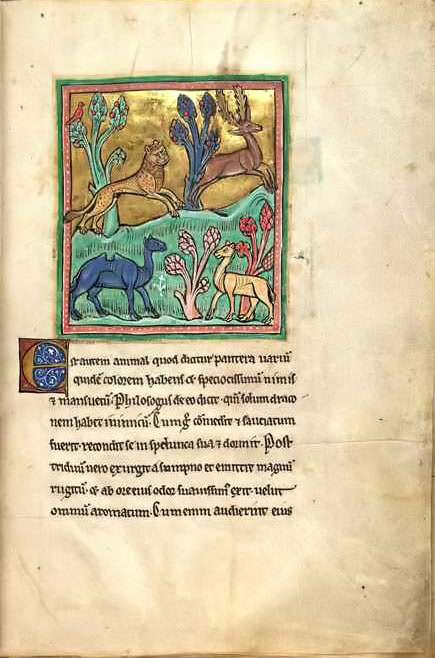 Est autem animal quod dicitur pantera uariū
quidē colorem habens & speciocissimū nimis
⁊ mansuetū. Philosogus de eo dicit. qm̄ solum draco
nem habet inimicū. Cumqȝ comederit & sauciatum
fuerit. recondit se in spelunca sua ⁊ dormit. Post
triduū uero exurgit a sompno et emittit magnū
rugitū. & ab ore eius odor suauissimꝰ exit uelut
omniū aromatum. Cum enim audierint eius